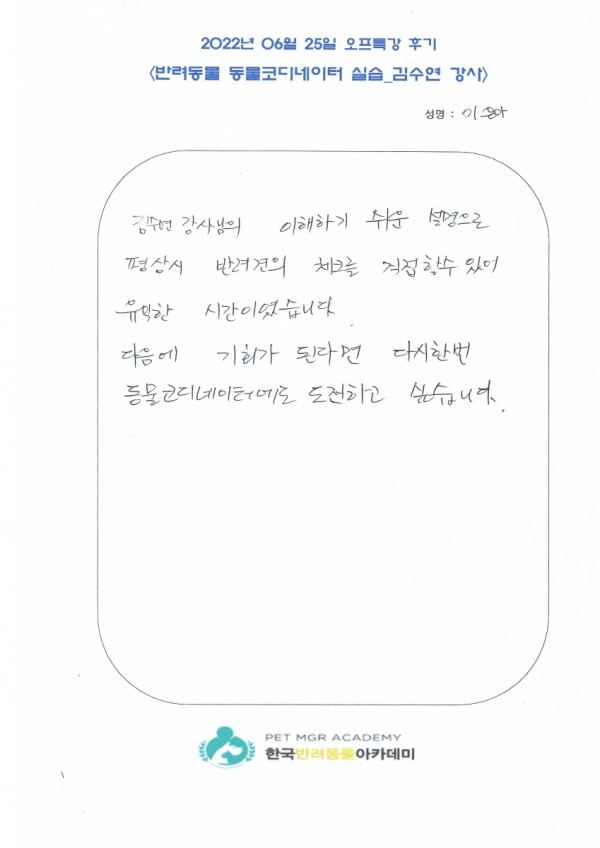 2022년 06월 25일 오프특강 후기
<반려동물 동물코디네이터 실습_김수연 강사>
성명 : 이
김수연 강사님의 이해하기 쉬운 설명으로
평상시 반려견의 체크를 직접 할수 있어
유익한 시간이였습니다.
다음에 기회가 된다면 다시한번
동물코디네이터에도 도전하고 싶습니다.
PET MGR ACADEMY
한국반려동물아카데미